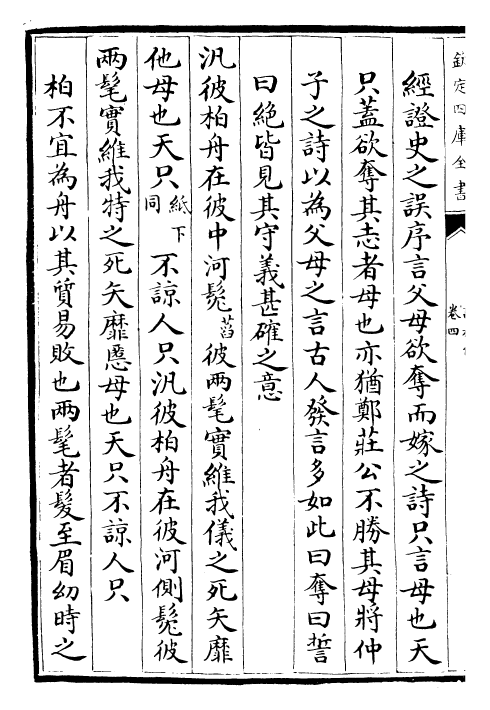 欽定四庫全書
卷四
經證史之誤序言父母欲奪而嫁之詩只言母也天
只蓋欲奪其志者母也亦猶鄭莊公不勝其母將仲
子之詩以為父母之言古人發言多如此曰奪曰誓
曰絕皆見其守義甚確之意
汎彼柏舟在彼中河髧萏彼兩髦實維我儀之死矢靡
他母也天只紙下同不諒人只汎彼柏舟在彼河側髧彼
兩髦實維我特之死矢靡慝母也天只不諒人只
柏不宜為舟以其質易敗也兩髦者髮至眉幼時之